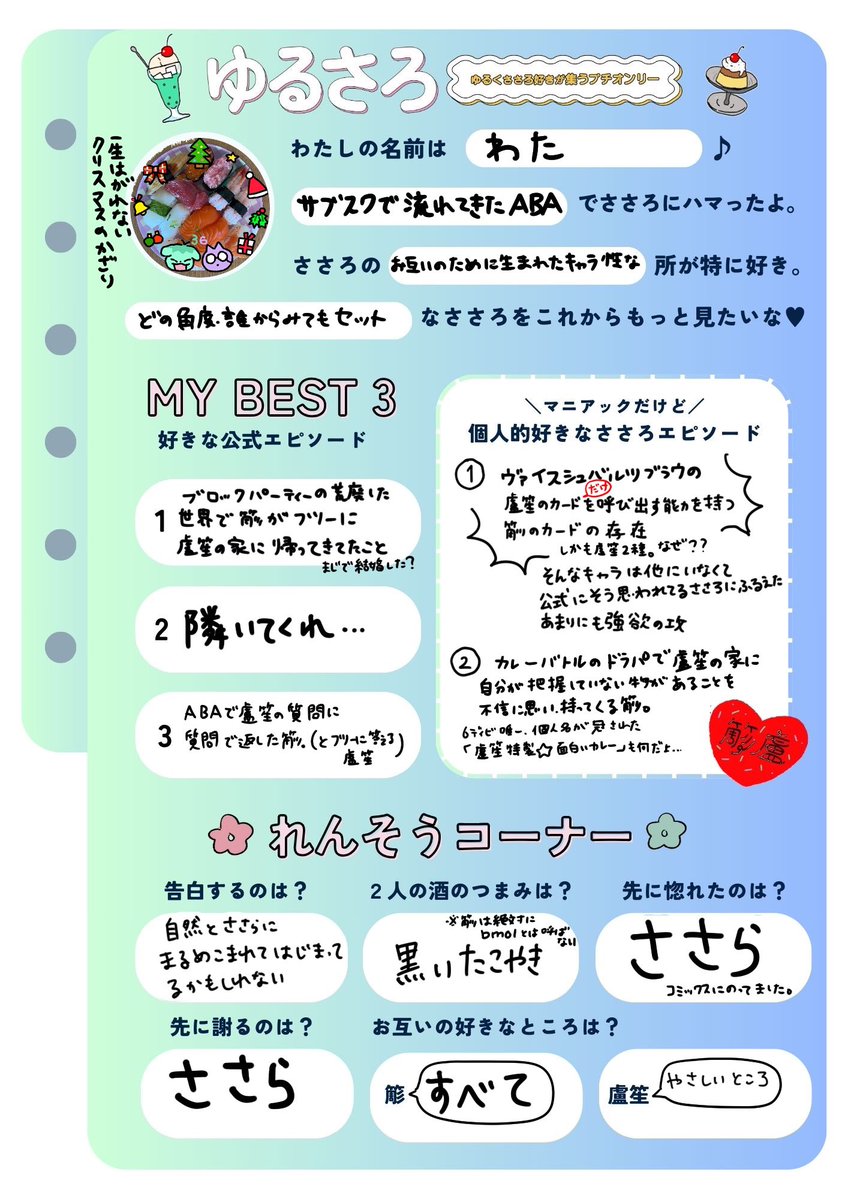 ゆるさろ
ゆるくささろ好きが集うプチオンリー
一生はがれない
クリスマスのかざり
わたしの名前は わた ♪
サブスクで流れてきたABA でささろにハマったよ。
ささろの お互いのために生まれたキャラ性な 所が特に好き。
どの角度・誰からみてもセット なささろをこれからもっと見たいな♥
MY BEST 3
好きな公式エピソード
1 ブロックパーティーの荒廃した
世界で簓がフツーに
盧笙の家に帰ってきてたこと
まじで結婚した?
2 隣いてくれ…
3 ABAで盧笙の質問に
質問で返した簓。(とフツーに答える
盧笙)
＼マニアックだけど／
個人的好きなささろエピソード
① ヴァイスシュバルツブラウの
盧笙のカードだけを呼び出す能力を持つ
簓のカードの存在
しかも盧笙2種。なぜ??
そんなキャラは他にいなくて
公式にそう思われてるささろにふるえた
あまりにも強欲の攻
② カレーバトルのドラパで盧笙の家に
自分が把握していない物があることを
不信に思い、持ってくる簓。
6ディビ唯一、個人名が冠された
「盧笙特製☆面白いカレー」も何だよ…
簓盧
れんそうコーナー
告白するのは？
自然とささらに
まるめこまれてはじまって
るかもしれない
2人の酒のつまみは？
※簓は絶対に
bmolとは呼ば
ない
黒いたこやき
先に惚れたのは？
ささら
コミックスにのってました。
先に謝るのは？
ささら
お互いの好きなところは？
簓 すべて
盧笙 やさしいところ